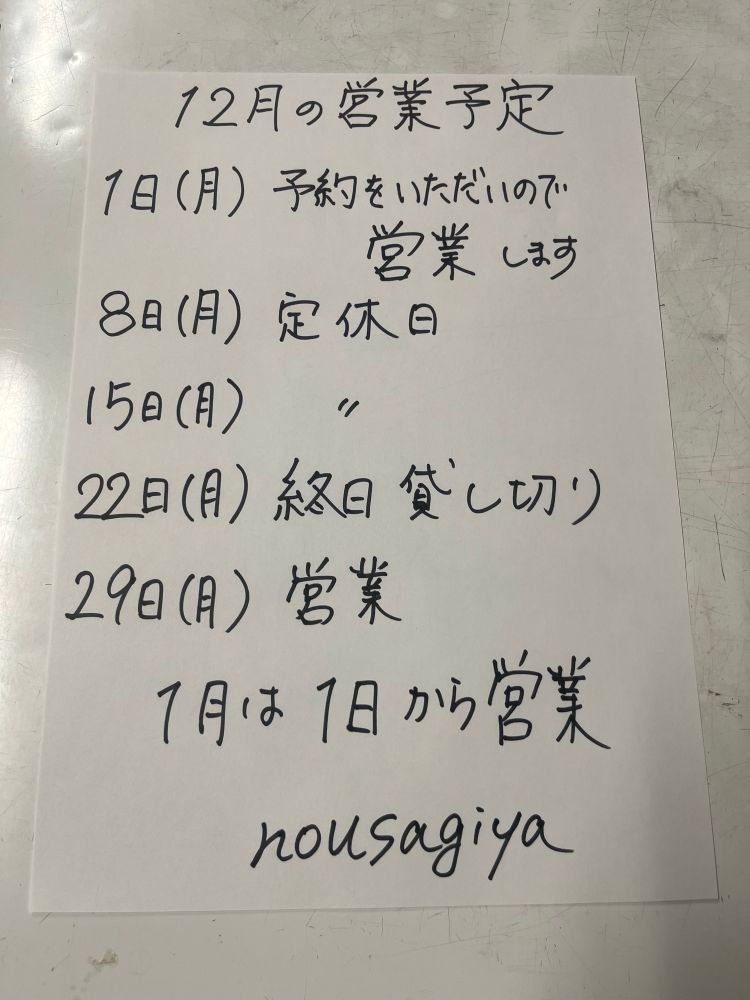 12月の営業予定
1日(月) 予約をいただいので
営業します
8日(月) 定休日
15日(月) 〃
22日(月) 終日 貸し切り
29日(月) 営業
1月は 1日 から営業
nousagiya